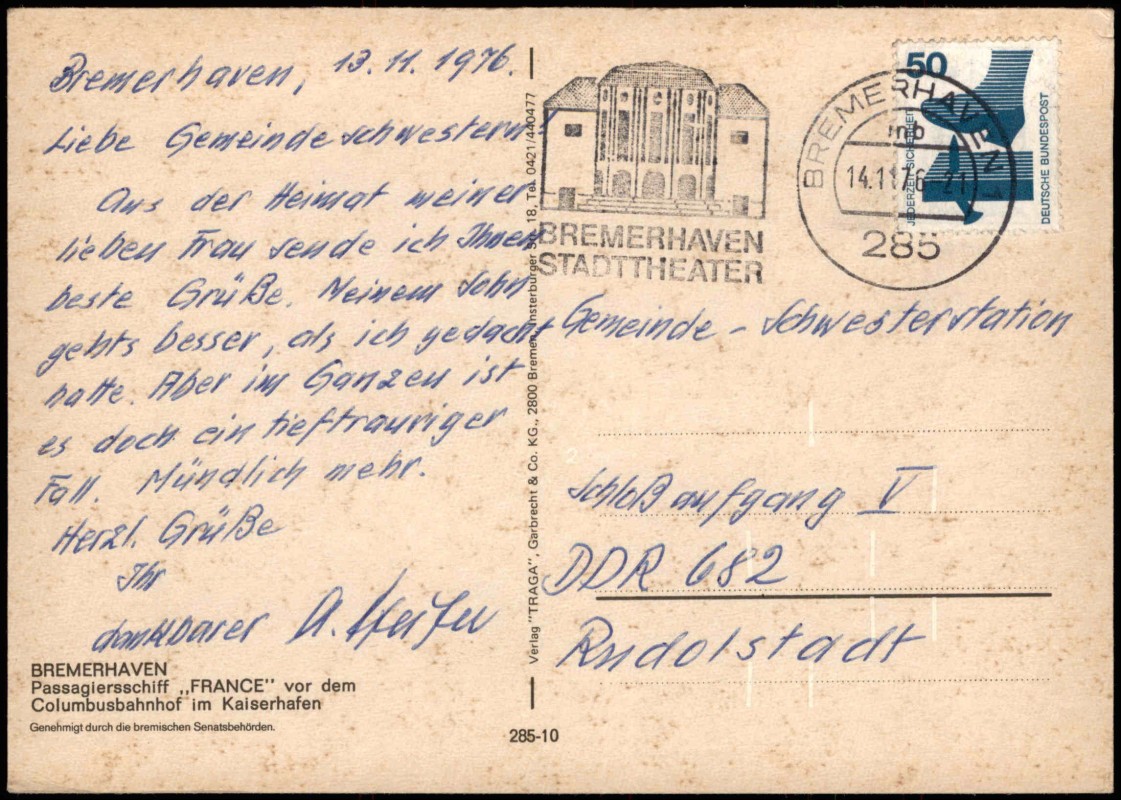 Bremerhaven, 13.11.1976.
Liebe Gemeindeschwestern
Aus der Heimat meiner
lieben Frau sende ich Ihnen
beste Grüße. Meinem Sohn
gehts besser, als ich gedacht
hatte. Aber im Ganzen ist
es doch ein tieftrauriger
Fall. Mündlich mehr.
Herzl. Grüße
Ihr
dankbarer A.
BREMERHAVEN
Passagiersschiff „FRANCE" vor dem
Columbusbahnhof im Kaiserhafen
Genehmigt durch die bremischen Senatsbehörden.
Verlag "TRAGA", Garbrecht & Co. KG., 2800 Bremen, 18, Tel. 0421/440477
285-10
BREMERHAVEN
STADTTHEATER
BREMERHAVEN
mb
14.11.76-21
285
50
JEDERZEIT SICHERHEIT
DEUTSCHE BUNDESPOST
Gemeinde-Schwesterstation
Schloßaufgang V
DDR 682
Rudolstadt